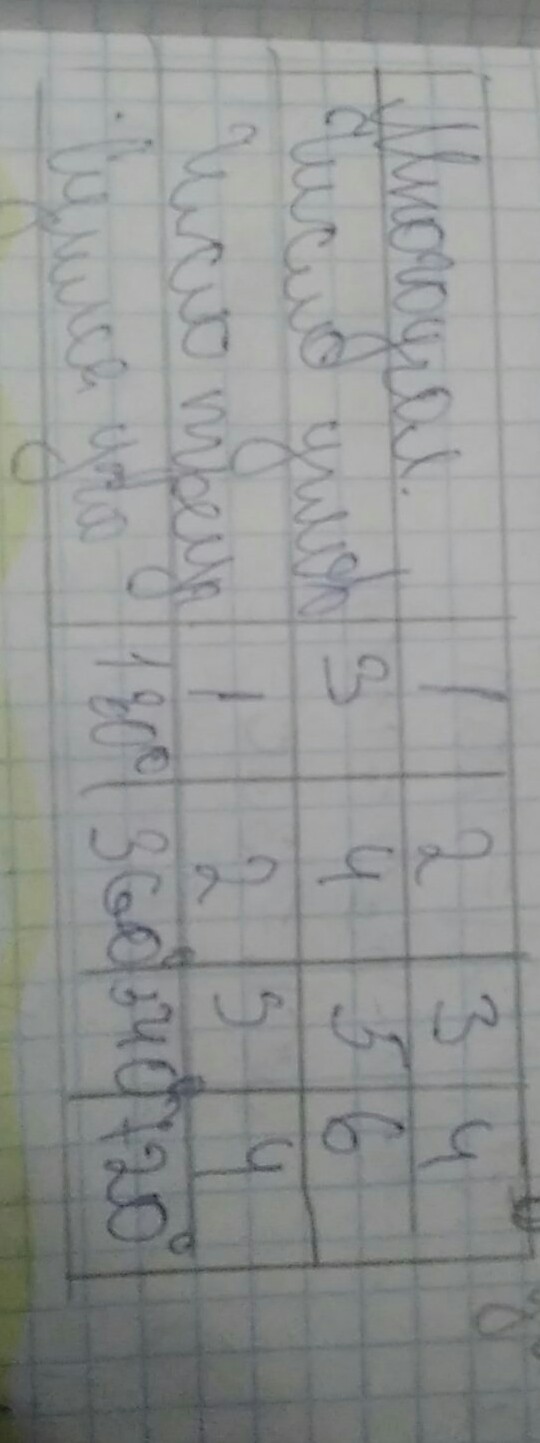 Многоугол. 1 2 3 4
Число углов 3 4 5 6
Число треуг 1 2 3 4
180° 360° 540° 720°